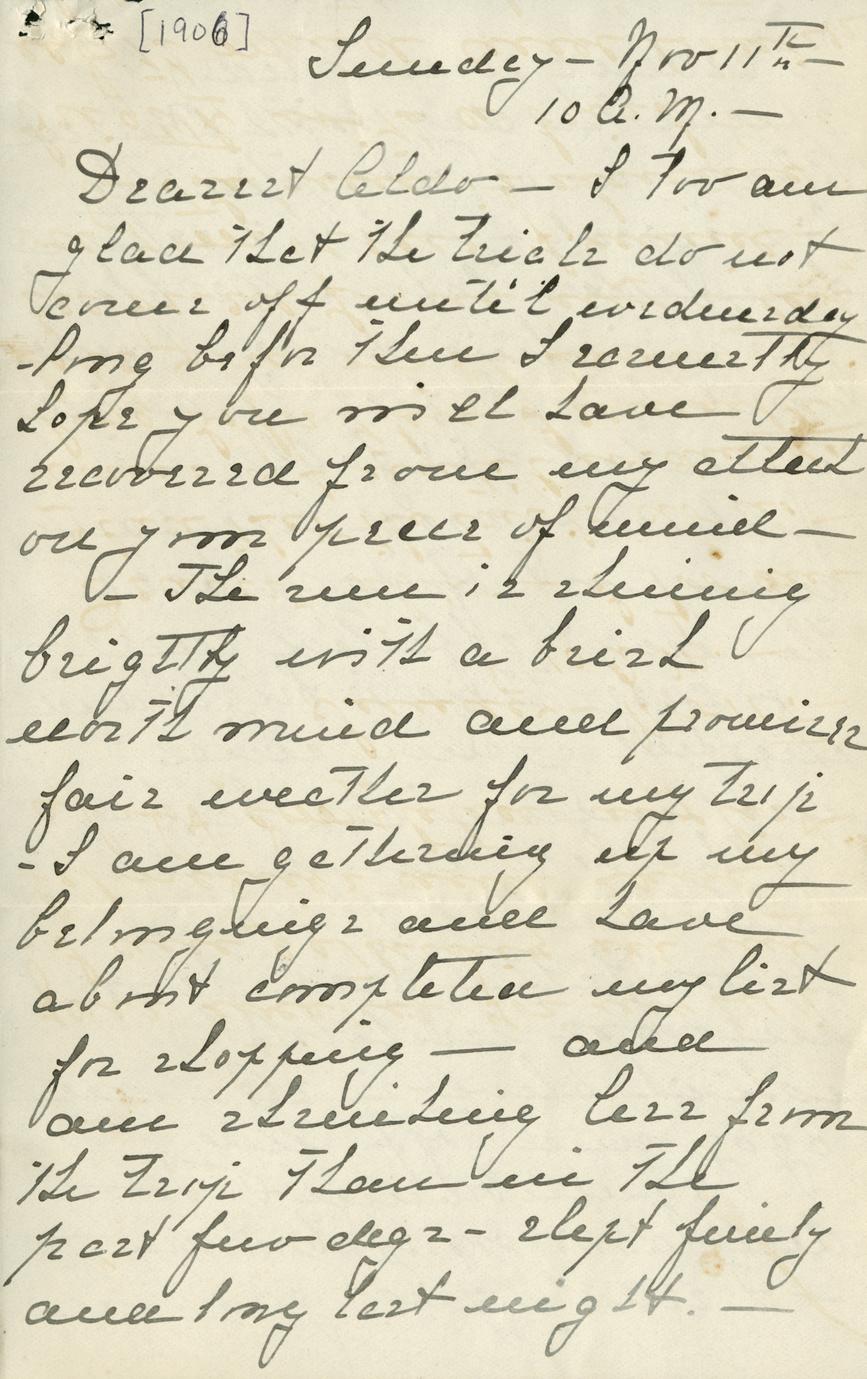 [1906]
Sunday - Nov 11th -
10 A.M. -
Dearest Aldo - I too am
glad that the trials do not
come off until wednesday
- long before then I earnestly
hope you will have
recovered from my attack
on your peace of mind -
- The sun is shining
brightly with a brisk
north wind and promises
fair weather for my trip
- I am gathering up my
belongings and have
about completed my list
for shopping - and
am shrinking less from
the trip than in the
past few days - slept finely
and long last night. -